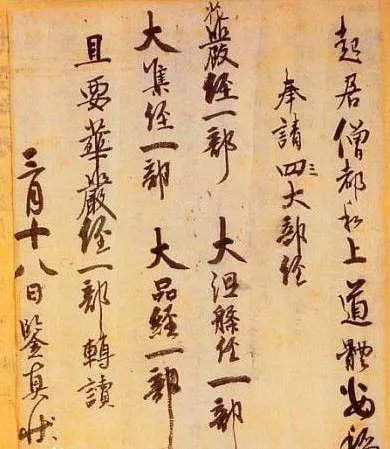 起居僧都和上道體安
奉請四三大部経
嚴経一部 大涅槃経一部
大集経一部 大品経一部
且要華嚴経一部轉讀
三月十八日鑒真状